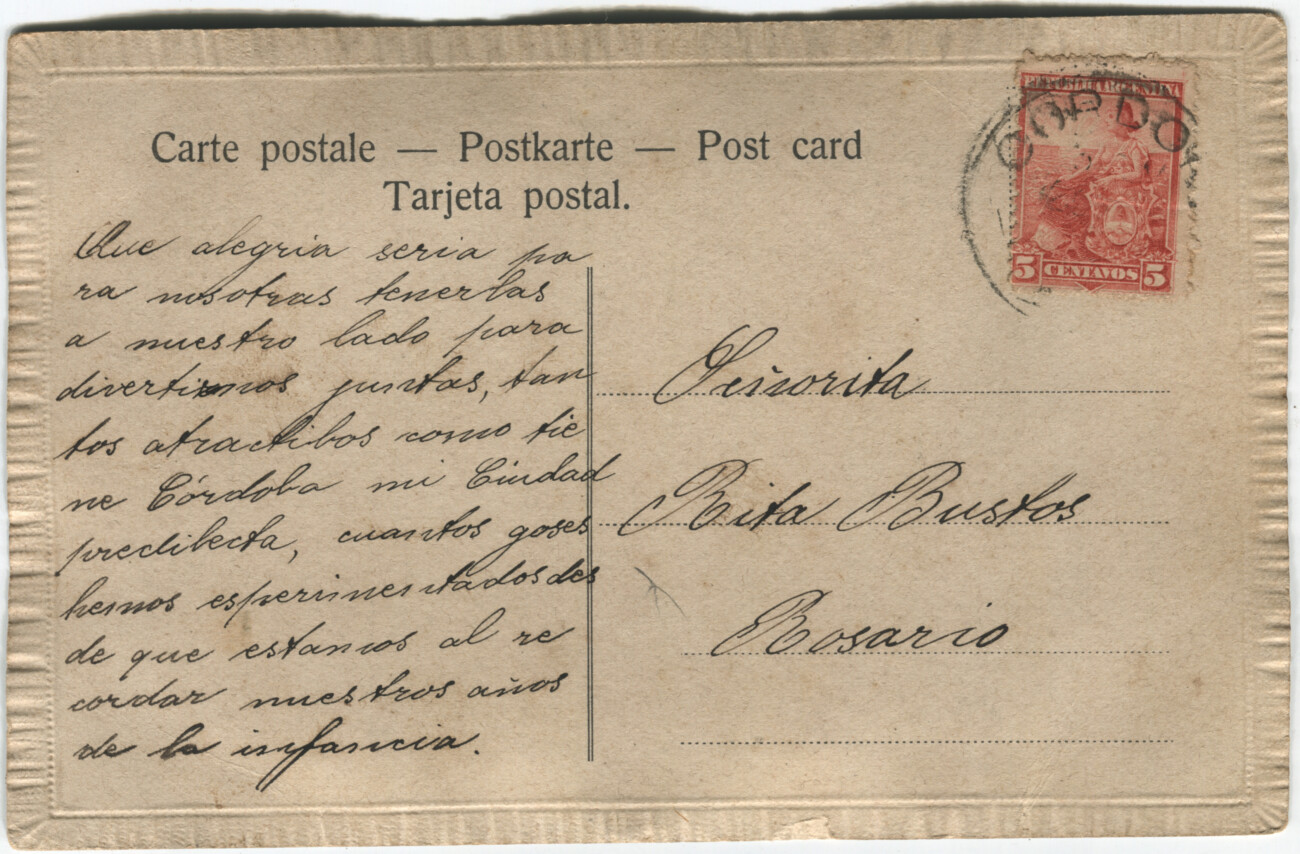 Carte postale — Postkarte — Post card
Tarjeta postal.
REPUBLICA ARGENTINA
CORDO
5 CENTAVOS 5
Que alegria seria pa
ra nosotras tenerlas
a nuestro lado para
divertirnos juntas, tan
tos atractibos como tie
ne Córdoba mi Ciudad
predilecta, cuantos goses
hemos esperimentados des
de que estamos al re
cordar nuestros años
de la infancia.
Señorita
Rita Bustos
Rosario